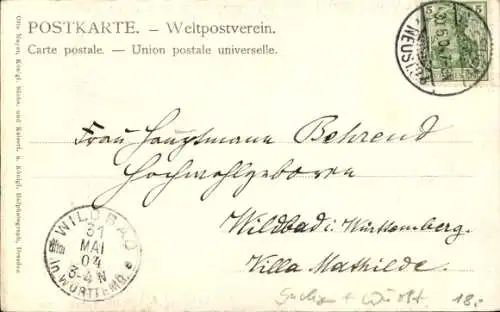 POSTKARTE. — Weltpostverein.
Carte postale. — Union postale universelle.
Otto Mayer, Königl. Sächs. und Kaiserl. u. Königl. Hofphotograph, Dresden
5 5
NEUST
Frau Hauptmann Behrend
Hochwohlgeboren
Wildbad i. Württemberg.
Villa Mathilde.
WILDBAD
31
MAI
04
3-4 N
in WÜRTTEMB.
18.-